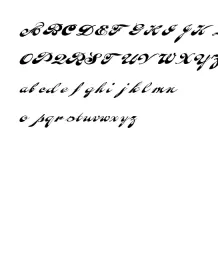 ABCDEF GHI JK L
OPQRST UVWXYZ
abcdef ghi jklmn
o pqrstuvwxyz